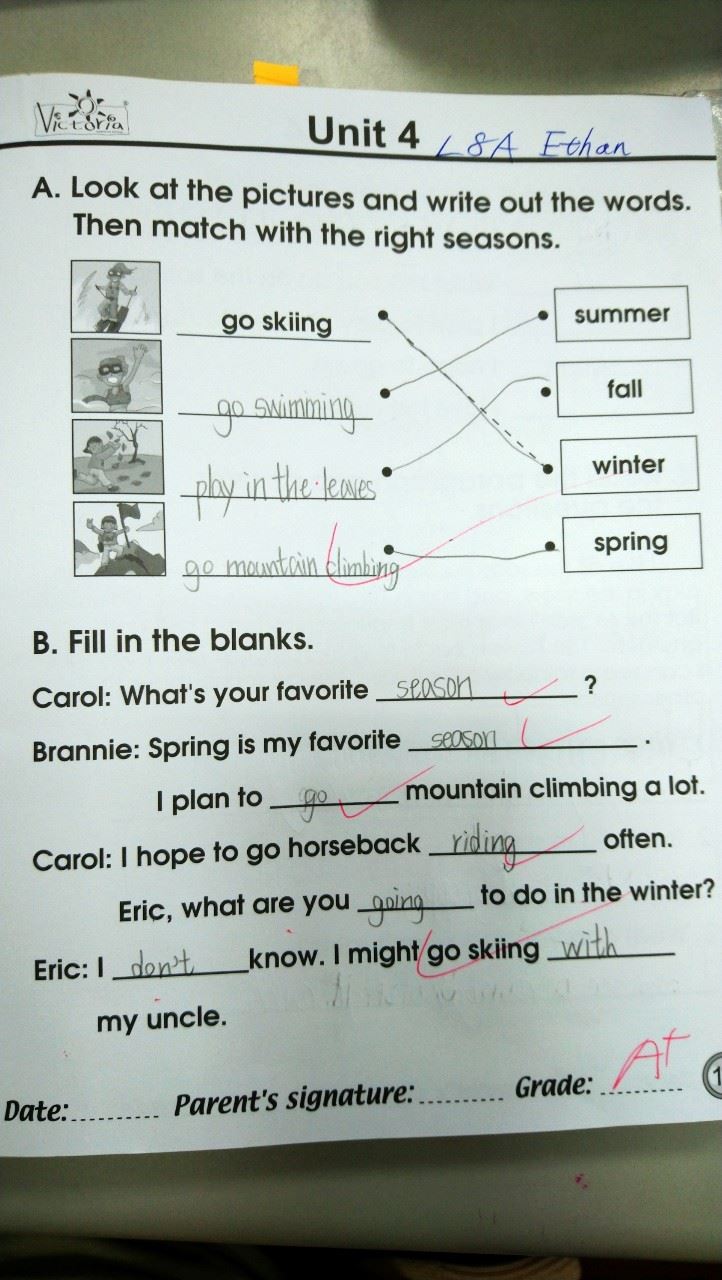 Victoria
Unit 4 L8A Ethan
A. Look at the pictures and write out the words.
Then match with the right seasons.
go skiing summer
go swimming fall
play in the leaves winter
go mountain climbing spring
B. Fill in the blanks.
Carol: What's your favorite season ?
Brannie: Spring is my favorite season .
I plan to go mountain climbing a lot.
Carol: I hope to go horseback riding often.
Eric, what are you going to do in the winter?
Eric: I don't know. I might go skiing with
my uncle.
Date:.......... Parent's signature:.......... Grade: A+